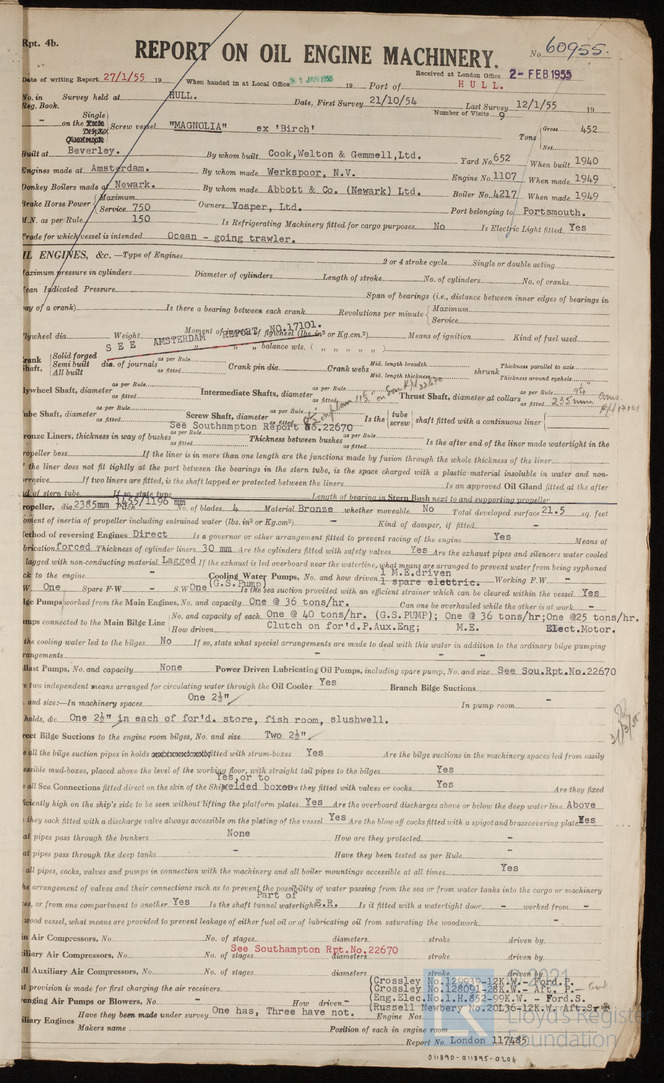 Rpt. 4b.
REPORT ON OIL ENGINE MACHINERY.
No. 60955.
Date of writing Report 27/1/55 19 When handed in at Local Office 31 JAN 1955 19 Port of HULL.
Received at London Office 2- FEB 1955
No. in Reg. Book. Survey held at HULL. Date, First Survey 21/10/54 Last Survey 12/1/55 19
Number of Visits 9
- on the Single Screw vessel "MAGNOLIA" ex 'Birch' Tons Gross 452 Net
Built at Beverley. By whom built Cook,Welton & Gemmell,Ltd. Yard No. 652 When built 1940
Engines made at Amsterdam. By whom made Werkspoor, N.V. Engine No. 1107 When made 1949
Donkey Boilers made at Newark. By whom made Abbott & Co. (Newark) Ltd. Boiler No. 4217 When made 1949
Brake Horse Power Maximum Service 750 Owners Vosper, Ltd. Port belonging to Portsmouth.
M.N. as per Rule 150 Is Refrigerating Machinery fitted for cargo purposes No Is Electric Light fitted Yes
Trade for which vessel is intended Ocean - going trawler.
IL ENGINES, &c. —Type of Engines 2 or 4 stroke cycle Single or double acting
aximum pressure in cylinders Diameter of cylinders Length of stroke No. of cylinders No. of cranks
ean Indicated Pressure Span of bearings (i.e., distance between inner edges of bearings in
ay of a crank) Is there a bearing between each crank Revolutions per minute Maximum Service
lywheel dia. Weight Moment of inertia of flywheel (lbs. in² or Kg.cm.²) Means of ignition Kind of fuel used
" " " balance wts. ( " " " " " )
SEE AMSTERDAM REPORT NO.17101.
rank haft, Solid forged Semi built All built dia. of journals as per Rule as fitted Crank pin dia. Crank webs Mid. length breadth Mid. length thickness shrunk Thickness parallel to axis Thickness around eyehole
lywheel Shaft, diameter as per Rule as fitted Intermediate Shafts, diameter as per Rule as fitted Thrust Shaft, diameter at collars as per Rule as fitted 235mm
ube Shaft, diameter as per Rule as fitted Screw Shaft, diameter as per Rule as fitted Is the tube screw shaft fitted with a continuous liner
See Southampton Report No.22670
ronze Liners, thickness in way of bushes as per Rule as fitted Thickness between bushes as per Rule as fitted Is the after end of the liner made watertight in the
opeller boss If the liner is in more than one length are the junctions made by fusion through the whole thickness of the liner
the liner does not fit tightly at the part between the bearings in the stern tube, is the space charged with a plastic material insoluble in water and non-
rrosive If two liners are fitted, is the shaft lapped or protected between the liners Is an approved Oil Gland fitted at the after
d of stern tube If so, state type Length of bearing in Stern Bush next to and supporting propeller
ropeller, dia. 2385mm Pitch 1455/1196 mm No. of blades 4 Material Bronze whether moveable No Total developed surface 21.5 sq. feet
oment of inertia of propeller including entrained water (lbs. in² or Kg.cm²) - Kind of damper, if fitted -
ethod of reversing Engines Direct Is a governor or other arrangement fitted to prevent racing of the engine Yes Means of
brication forced Thickness of cylinder liners 30 mm Are the cylinders fitted with safety valves Yes Are the exhaust pipes and silencers water cooled
lagged with non-conducting material Lagged If the exhaust is led overboard near the waterline, what means are arranged to prevent water from being syphoned
ck to the engine - Cooling Water Pumps, No. and how driven 1 M.E.driven 1 spare electric. Working F.W. -
W. One Spare F.W. - S.W. One (G.S.Pump) Is the sea suction provided with an efficient strainer which can be cleared within the vessel Yes
lge Pumps worked from the Main Engines, No. and capacity One @ 36 tons/hr. Can one be overhauled while the other is at work -
mps connected to the Main Bilge Line No. and capacity of each One @ 40 tons/hr. (G.S.PUMP); One @ 36 tons/hr;One @25 tons/hr.
How driven Clutch on for'd.P.Aux.Eng; M.E. Elect.Motor.
the cooling water led to the bilges No If so, state what special arrangements are made to deal with this water in addition to the ordinary bilge pumping
rangements
llast Pumps, No. and capacity None Power Driven Lubricating Oil Pumps, including spare pump, No. and size See Sou.Rpt.No.22670
e two independent means arranged for circulating water through the Oil Cooler Yes Branch Bilge Suctions
. and size:—In machinery spaces One 2½" In pump room -
holds, &c. One 2½" in each of for'd. store, fish room, slushwell.
rect Bilge Suctions to the engine room bilges, No. and size Two 2½"
e all the bilge suction pipes in holds fitted with strum-boxes Yes Are the bilge suctions in the machinery spaces led from easily
essible mud-boxes, placed above the level of the working floor, with straight tail pipes to the bilges Yes
all Sea Connections fitted direct on the skin of the Ship Yes,or to welded boxes Are they fitted with valves or cocks Yes Are they fixed
iciently high on the ship's side to be seen without lifting the platform plates Yes Are the overboard discharges above or below the deep water line Above
they each fitted with a discharge valve always accessible on the plating of the vessel Yes Are the blow off cocks fitted with a spigot and brass covering plate Yes
at pipes pass through the bunkers None How are they protected -
at pipes pass through the deep tanks - Have they been tested as per Rule -
all pipes, cocks, valves and pumps in connection with the machinery and all boiler mountings accessible at all times Yes
he arrangement of valves and their connections such as to prevent the possibility of water passing from the sea or from water tanks into the cargo or machinery
es, or from one compartment to another Yes Is the shaft tunnel watertight Part of E.R. Is it fitted with a watertight door - worked from -
wood vessel, what means are provided to prevent leakage of either fuel oil or of lubricating oil from saturating the woodwork -
in Air Compressors, No. No. of stages diameters stroke driven by
See Southampton Rpt.No.22670
iliary Air Compressors, No. No. of stages diameters stroke driven by
ll Auxiliary Air Compressors, No. No. of stages diameters stroke driven by
t provision is made for first charging the air receivers
(Crossley No.129939-12K.W.- Ford.P.
(Crossley No.128091-28K.W.- Aft. P.
enging Air Pumps or Blowers, No. - How driven - (Eng.Elec.No.1.H.852-99K.W. - Ford.S.
iliary Engines Have they been made under survey One has, Three have not. Engine Nos. (Russell Newbery No.20L36-12K.W. Aft.S.
Makers name Position of each in engine room
Report No. London 117485
© 2021
Lloyd's Register
Foundation
011890-011895-0206